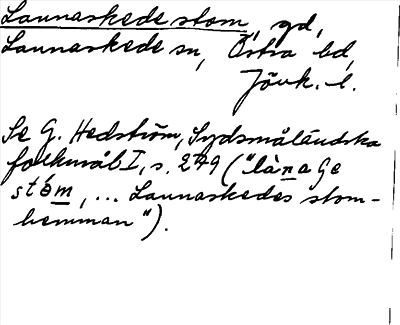 Lannaskede stom, gd,
Lannaskede sn, Östra hd,
Jönk. l.
Se G. Hedström, Sydsmåländska
folkmål I, s. 279 ("lànaɢe
stòm, ... Lannaskedes stom-
hemman").